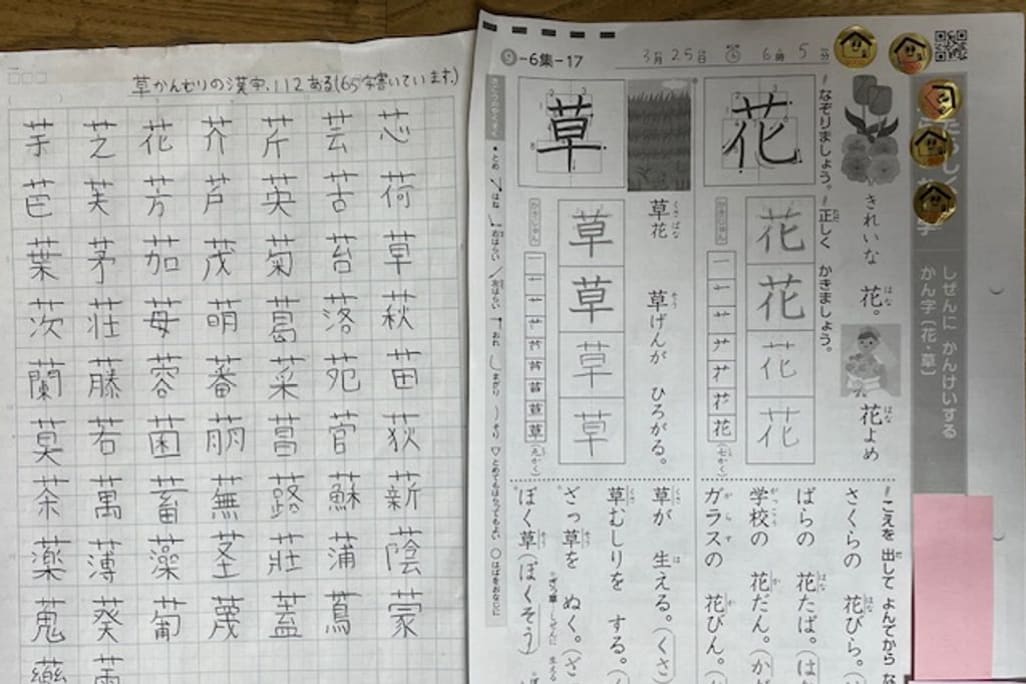 草かんむりの漢字.112ある(65字書いています。)
芋芝花芥芹芸芯
芭芙芳芦英苦荷
葉茅茄茂菊苔草
茨荘苺萌葛落萩
蘭藤蓉蕃菜苑苗
莫若菌萠菖菅荻
茶萬蓄蕪蕗蘇薪
薬薄藻茎荘蒲蔭
蒐葵葡蔑蓋蔦蒙
⑨-6集-17
3月25日 6時5分
しぜんに かんけいする
かん字(花・草)
なぞりましょう。
正しく かきましょう。
花
かきじゅん
花
花
花
花
(七かく)
きれいな 花。
花よめ
草
かきじゅん
草
草
草
草
(九かく)
草花
草げんが ひろがる。
こえを 出して よんでから
さくらの 花びら。
ばらの 花たば。
学校の 花だん。
ガラスの 花びん。
草が 生える。(くさ
草むしりを する。
ざっ草を ぬく。(ざ
ぼく草(ぼくそう)
とめ
はね
おれ
まがり
そり
とめてもはらってもよい
はばをおなじに